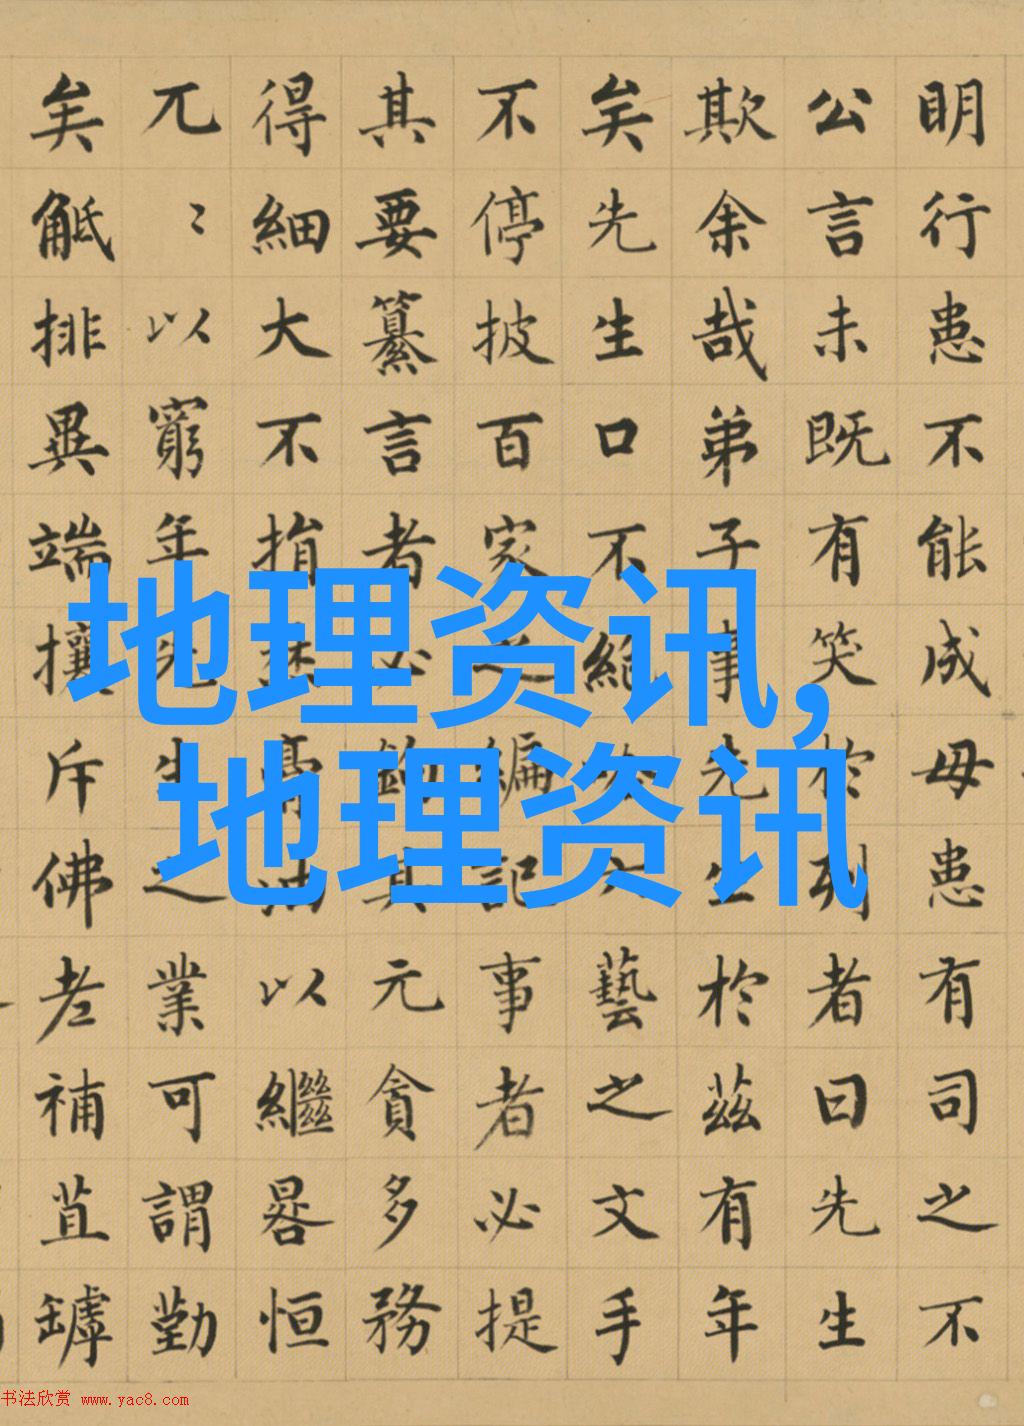 明行患不能成毋患有司之不
公言未既有笑於列者曰先生
欺余哉弟子事先生於茲有年
矣先生口不絕吟六藝之文手
不停披百家之編記事者必提
其要纂言者必鉤其元貪多務
得細大不捐焚膏油以繼晷恒
兀〻以窮年先生之業可謂勤
矣觝排異端攘斥佛老補苴罅
地理资讯,
地理资讯
书法欣赏 www.yac8.com